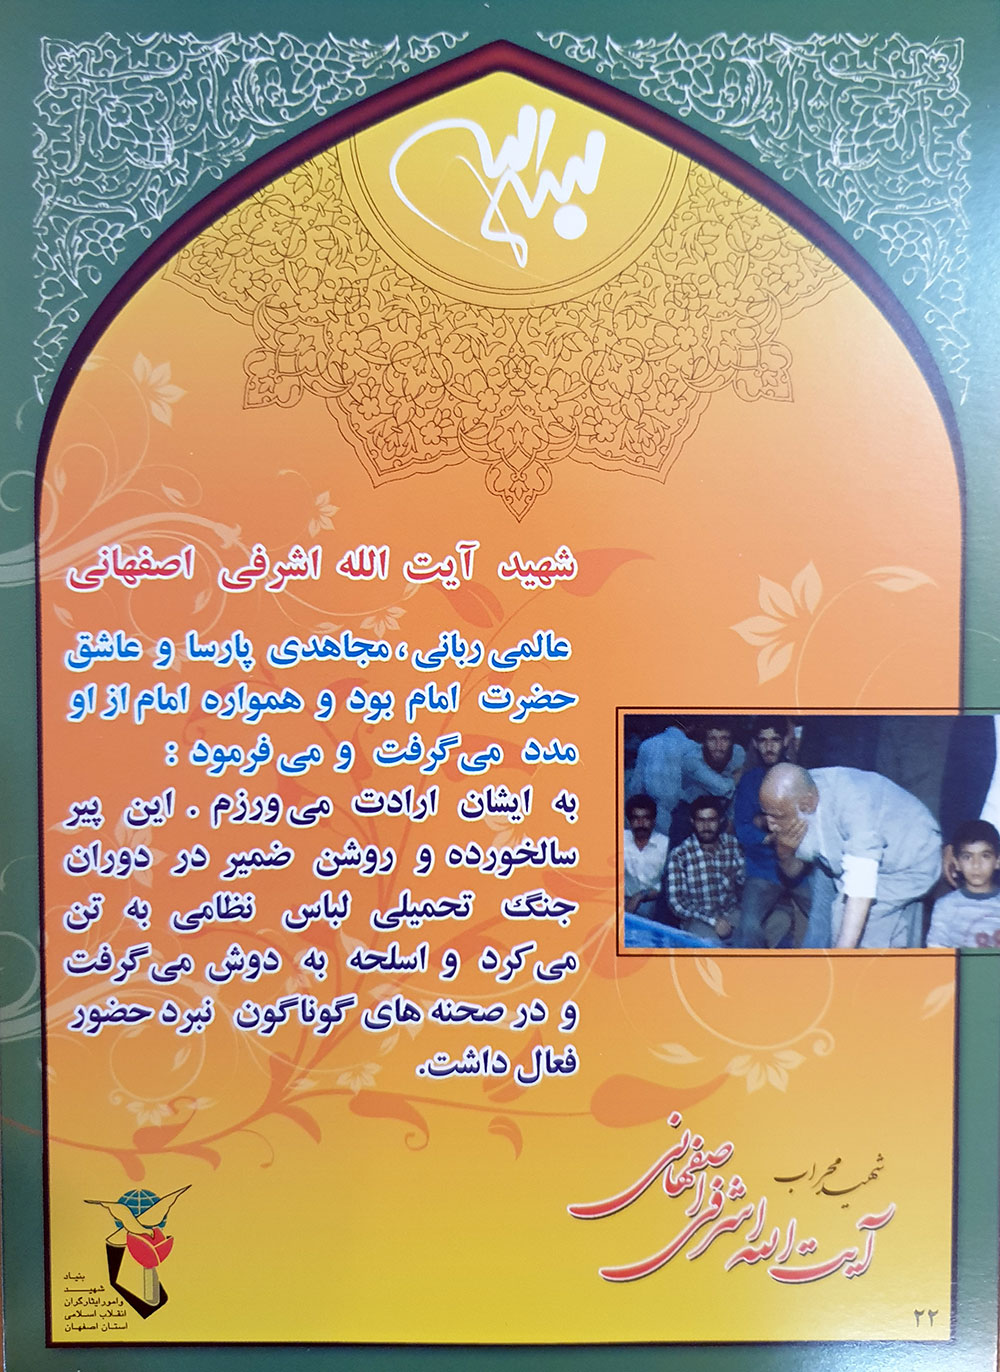 بسم الله
شهید آیت الله اشرفی اصفهانی
عالمی ربانی ، مجاهدی پارسا و عاشق
حضرت امام بود و همواره امام از او
مدد می‌گرفت و می فرمود :
به ایشان ارادت می ورزم . این پیر
سالخورده و روشن ضمیر در دوران
جنگ تحمیلی لباس نظامی به تن
می کرد و اسلحه به دوش می‌گرفت
و در صحنه های گوناگون نبرد حضور
فعال داشت.
شهید محراب
آیت الله اشرفی اصفهانی
بنیاد
شهید
و امور ایثارگران
انقلاب اسلامی
استان اصفهان
۲۲